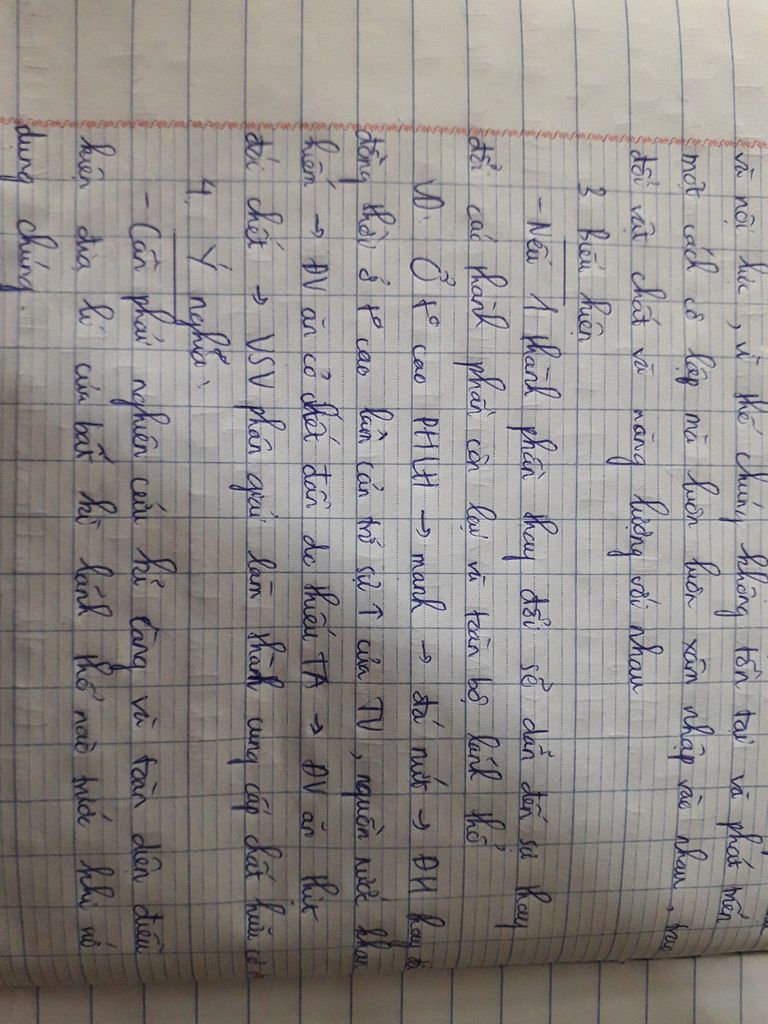 và nội lực, vì thế chúng không tồn tại và phát triển
một cách cô lập mà luôn luôn xâm nhập vào nhau, trao
đổi vật chất và năng lượng với nhau
3 Biểu hiện
- Nếu 1 thành phần thay đổi sẽ dẫn đến sự thay
đổi các thành phần còn lại và toàn bộ lãnh thổ
VD: Ở t° cao PHLH → mạnh → đá nứt → ĐH thay
đồng thời ở t° cao làm cản trở sự ↑ của TV, nguồn nước khan
hiếm → ĐV ăn cỏ chết dần do thiếu TA → ĐV ăn thịt
đói chết → VSV phân giải làm thành cung cấp chất hữu cơ
4. Ý nghĩa:
- Cần phải nghiên cứu kĩ càng và toàn diện điều
kiện địa lí của bất kì lãnh thổ nào trước khi
dụng chúng.